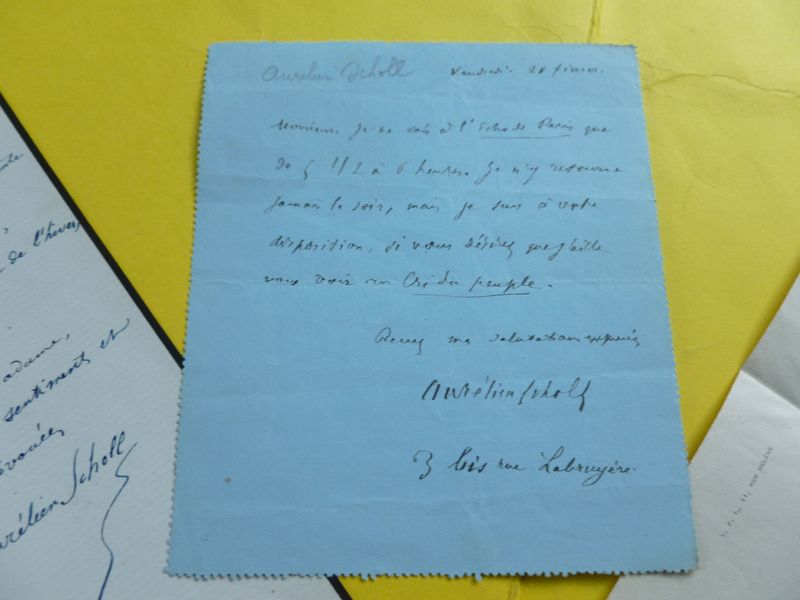 Aurélien Scholl
Vendredi 28 février.
Monsieur, Je ne vais à l'Echo de Paris que
de 5 1/2 à 6 heures. Je n'y retourne
jamais le soir, mais je suis à votre
disposition, si vous désirez que j'aille
vous voir au Cri du peuple.
Recevez mes salutations
Aurélien Scholl
3 bis rue Labruyère.
de l'hiver,
adame,
sentiments et
évoués
urélien Scholl
11, RUE HÉLÈNE